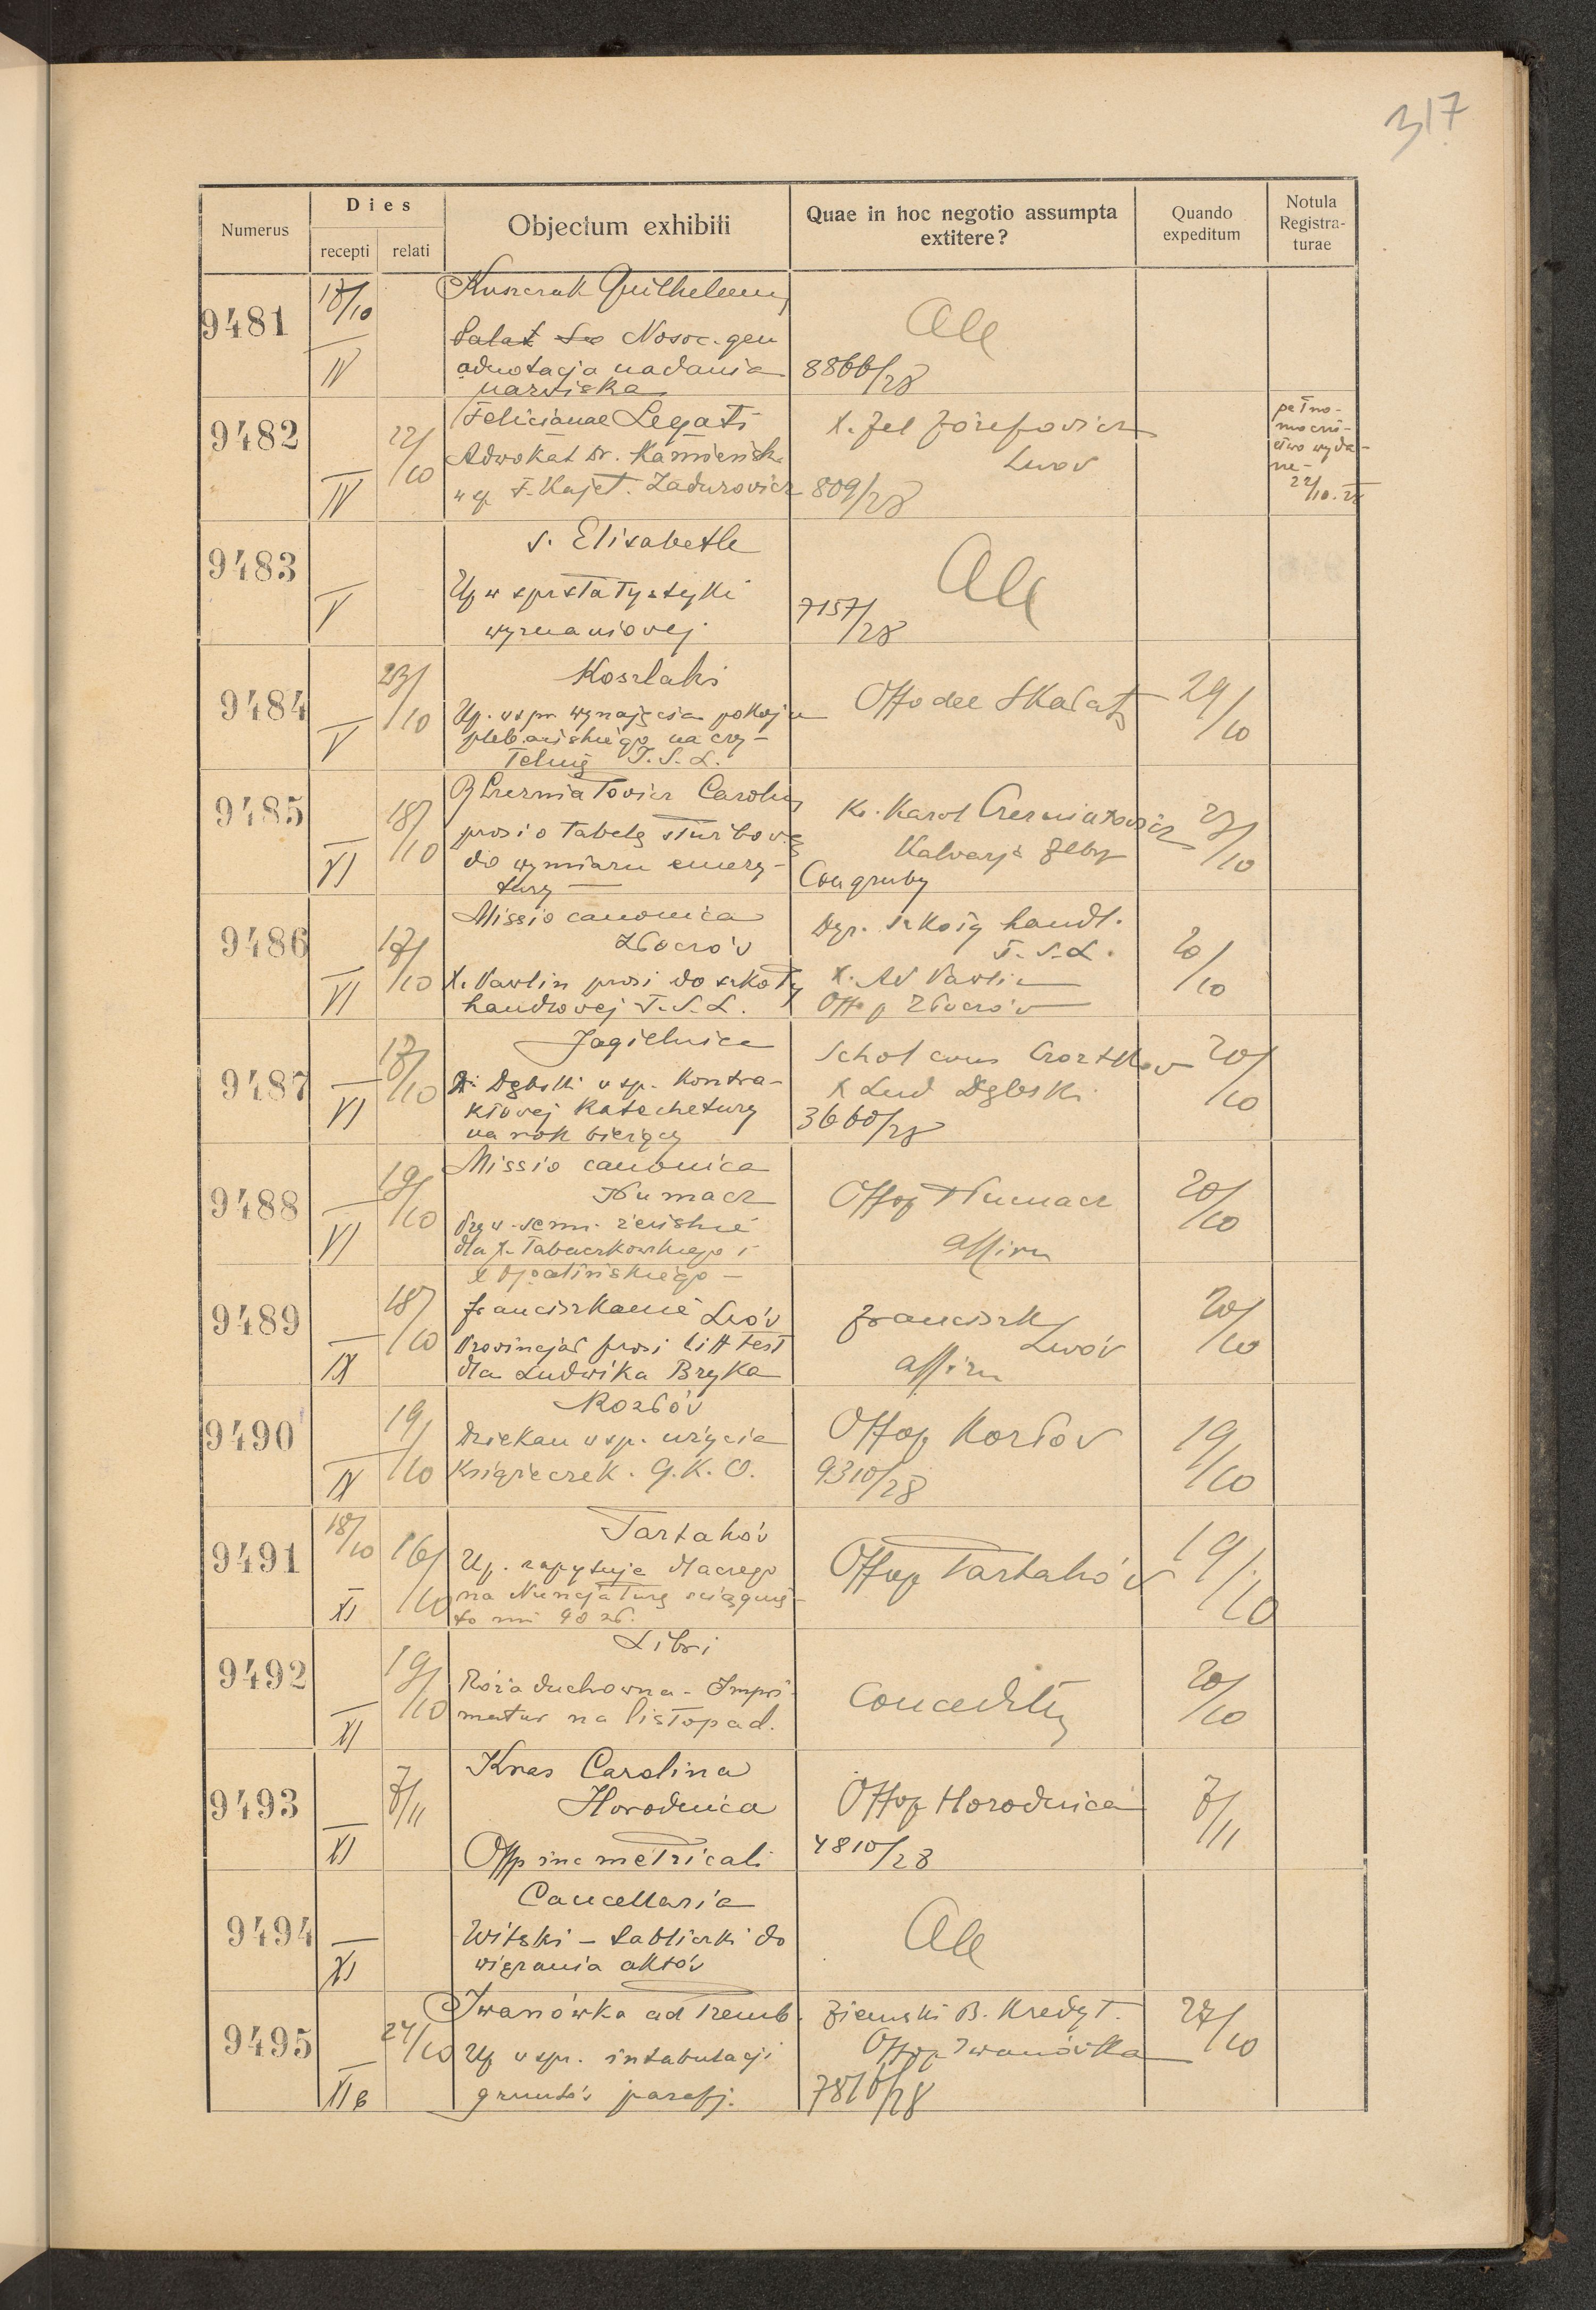 317
Numerus
Dies
recepti relati
Objectum exhibiti
Quae in hoc negotio assumpta
extitere?
Quando
expeditum
Notula
Registra-
turae
9481
17/10
IV
Kuszczak Guilhelmus
Nosoc. gen
adnotacja nadania
nazwiska
All
8866/28
9482
22/10
IV
Felicianae Legati
Adwokat Dr. Kamieńsk
w sp. F. Kajet. Zadurowicz
X. Jel Józefowicz
Lwów
809/28
pełno-
mocni-
ctwo wyda-
ne-
22/10.28
9483
V
S. Elisabeth
Up w spr statystyki
wyznaniowej
All
7157/28
9484
23/10
V
Koszlaki
Up. w spr. wynajęcia pokoju
plebańskiego na czy-
telnię T.S.L.
Offo dec Skałat
29/10
9485
18/10
XI
Czerniatowicz Carolus
prosi o tabelę służbową
do wymiaru emery-
tury
Ks. Karol Czerniatowicz
Kalwarja Zebrz
Congruby
23/10
9486
17/10
VI
Missio canonica
Złoczów
X. Pawlin prosi do szkoły
handlowej T.S.L.
Dyr. szkoły handl.
T.S.L.
X. Ad Pawlin
Offop Złoczów
20/10
9487
17/10
VI
Jagielnica
X. Dębski w sp. kontra-
ktowej katechetury
na rok bieżący
Schol cons Czortków
X Lud Dębski
3660/28
20/10
9488
19/10
VI
Missio canonica
Tłumacz
Pryw. sem. żeńskie
dla X. Tabaczkowskiego i
X Opalińskiego -
Offop Tłumacz
affirm
20/10
9489
18/10
IX
Franciszkanie Lwów
Prowincjał prosi litt test
dla Ludwika Bryka
Franciszk
Lwów
affirm
20/10
9490
19/10
IX
Kozłów
Dziekan w sp. użycia
książeczek. G.K.O.
Offop Kozłów
9310/28
19/10
9491
18/10
16/10
XI
Tartaków
Up. zapytuje dlaczego
na Nuncjaturę ściągnię-
to mu 40 zł.
Offop Tartaków
19/10
9492
19/10
XI
Libri
Róża duchowna - Impri-
matur na listopad.
Conceditur
20/10
9493
7/11
XI
Knas Carolina
Horodnica
Offp in c metricali
Offop Horodnica
4810/28
7/11
9494
XI
Cancellaria
Witski - tabliczki do
wiązania aktów
All
9495
24/10
XII b
Iwanówka ad Tremb.
Up w spr. intabulacji
gruntów parafj.
Ziemski B. Kredyt.
Offop Iwanówka
7816/28
27/10